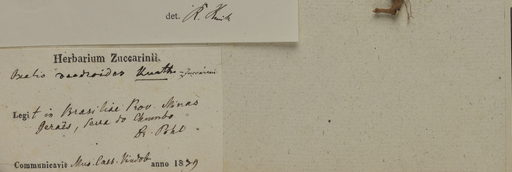 det.
Herbarium Zuccarinii.
Oxalis Kunth
Legit in Brasiliae Prov. Minas
Geraës, Serra do Chumbo
Dr. Pohl
Communicavit Mus. Caes. Vindob. anno 1839